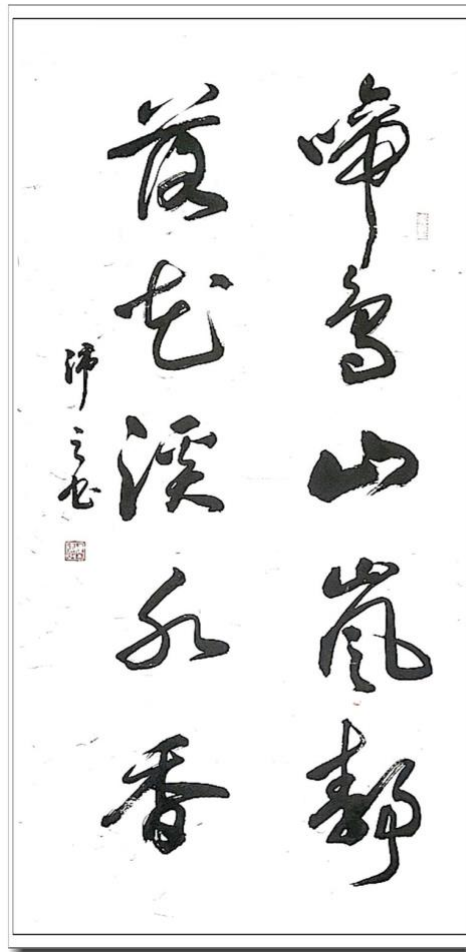 啼鸟山岚静
落花溪水香
沛之书